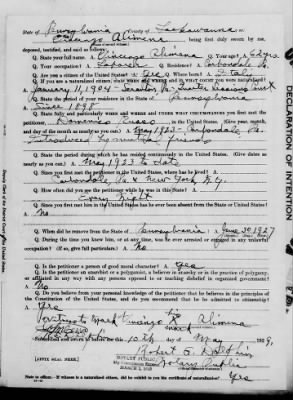 State of Pennsylvania County of Lackawanna
Vincenzo Alimena, being first duly sworn by me,
deposed, testified, and said as follows:
Q. State your full name. A. Vincenzo Alimena Q. Your age?
Q. Your occupation? A. Laborer Q. Residence? A. Carbondale Pa
Q. Are you a citizen of the United States? A. Yes Q. Where born? A. Italy
Q. If you are a naturalized citizen, state when and in what court you were naturalized?
A. January 11, 1904 - Scranton Pa - Quarter Sessions Court
Q. State the period of your residence in the State of Pennsylvania
A. Since 1898
Q. State fully and particularly when and where and under what circumstances you first met the
petitioner, Domenico in the United States. (Give year, month,
and day of the month as nearly as you can) A. May 1923 - Carbondale Pa.
Introduced by mutual friend
Q. State the period during which he has resided continuously in the United States. (Give dates as
nearly as you can.) A. May 1923 to date
Q. Since you first met the petitioner in the United States, where has he lived? A.
Carbondale Pa & New York N.Y.
Q. How often did you see the petitioner while he was in this State? A.
Every Night
Q. Since you first met him in the United States has he ever been absent from the State or United States?
A. No
Q. When did he remove from the State of Pennsylvania? A. June 30, 1927
Q. During the time you knew him, or at any time, was he ever arrested or engaged in any unlawful
occupation? (If so, give full particulars.) A. No
Q. Is the petitioner a person of good moral character? A. Yes
Q. Is the petitioner an anarchist or a polygamist, a believer in anarchy or in the practice of polygamy,
or affiliated in any way with any persons opposed to or teaching disbelief in organized government?
A. No
Q. Do you believe from your personal knowledge of the petitioner that he believes in the principles
of the Constitution of the United States, and do you recommend that he be admitted to citizenship?
A. Yes
Vincenzo Alimena
10th day May 1929.
Notary Public
[AFFIX SEAL HERE.]
NOTARY PUBLIC
DECLARATION OF INTENTION